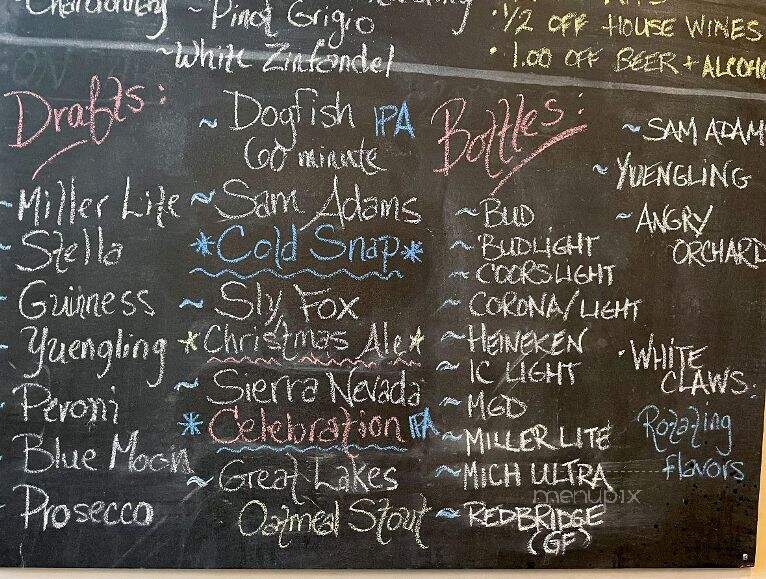 Chardonnay ~ Pinot Grigio
~White Zinfandel
• 1/2 OFF HOUSE WINES
• 1.00 OFF BEER + ALCOHO
Drafts:
~Miller Lite
~Stella
~Guinness
~Yuengling
~Peroni
~Blue Moon
~Prosecco
~ Dogfish IPA
60 minute
~ Sam Adams
*Cold Snap*
~ Sly Fox
*Christmas Ale*
~ Sierra Nevada
* Celebration IPA
~ Great Lakes
Oatmeal Stout
Bottles:
~BUD
~BUDLIGHT
~COORSLIGHT
~CORONA/LIGHT
~HEINEKEN
~IC LIGHT
~MGD
~MILLER LITE
~MICH ULTRA
~REDBRIDGE
(GF)
~SAM ADAM
~YUENGLING
~ANGRY
ORCHARD
•WHITE
CLAWS
Rotating
flavors
menupix